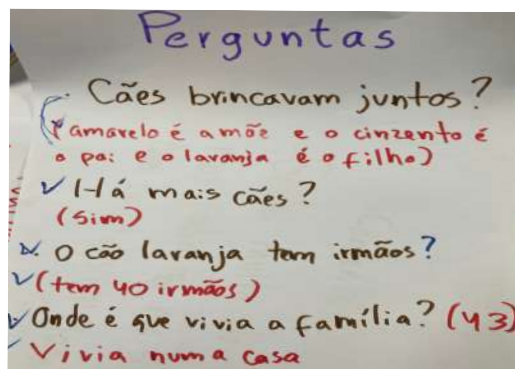 Perguntas
Cães brincavam juntos?
(amarelo é a mãe e o cinzento é
o pai e o laranja é o filho)
Há mais cães?
(Sim)
O cão laranja tem irmãos?
(tem 40 irmãos)
Onde é que vivia a família? (43)
Vivia numa casa